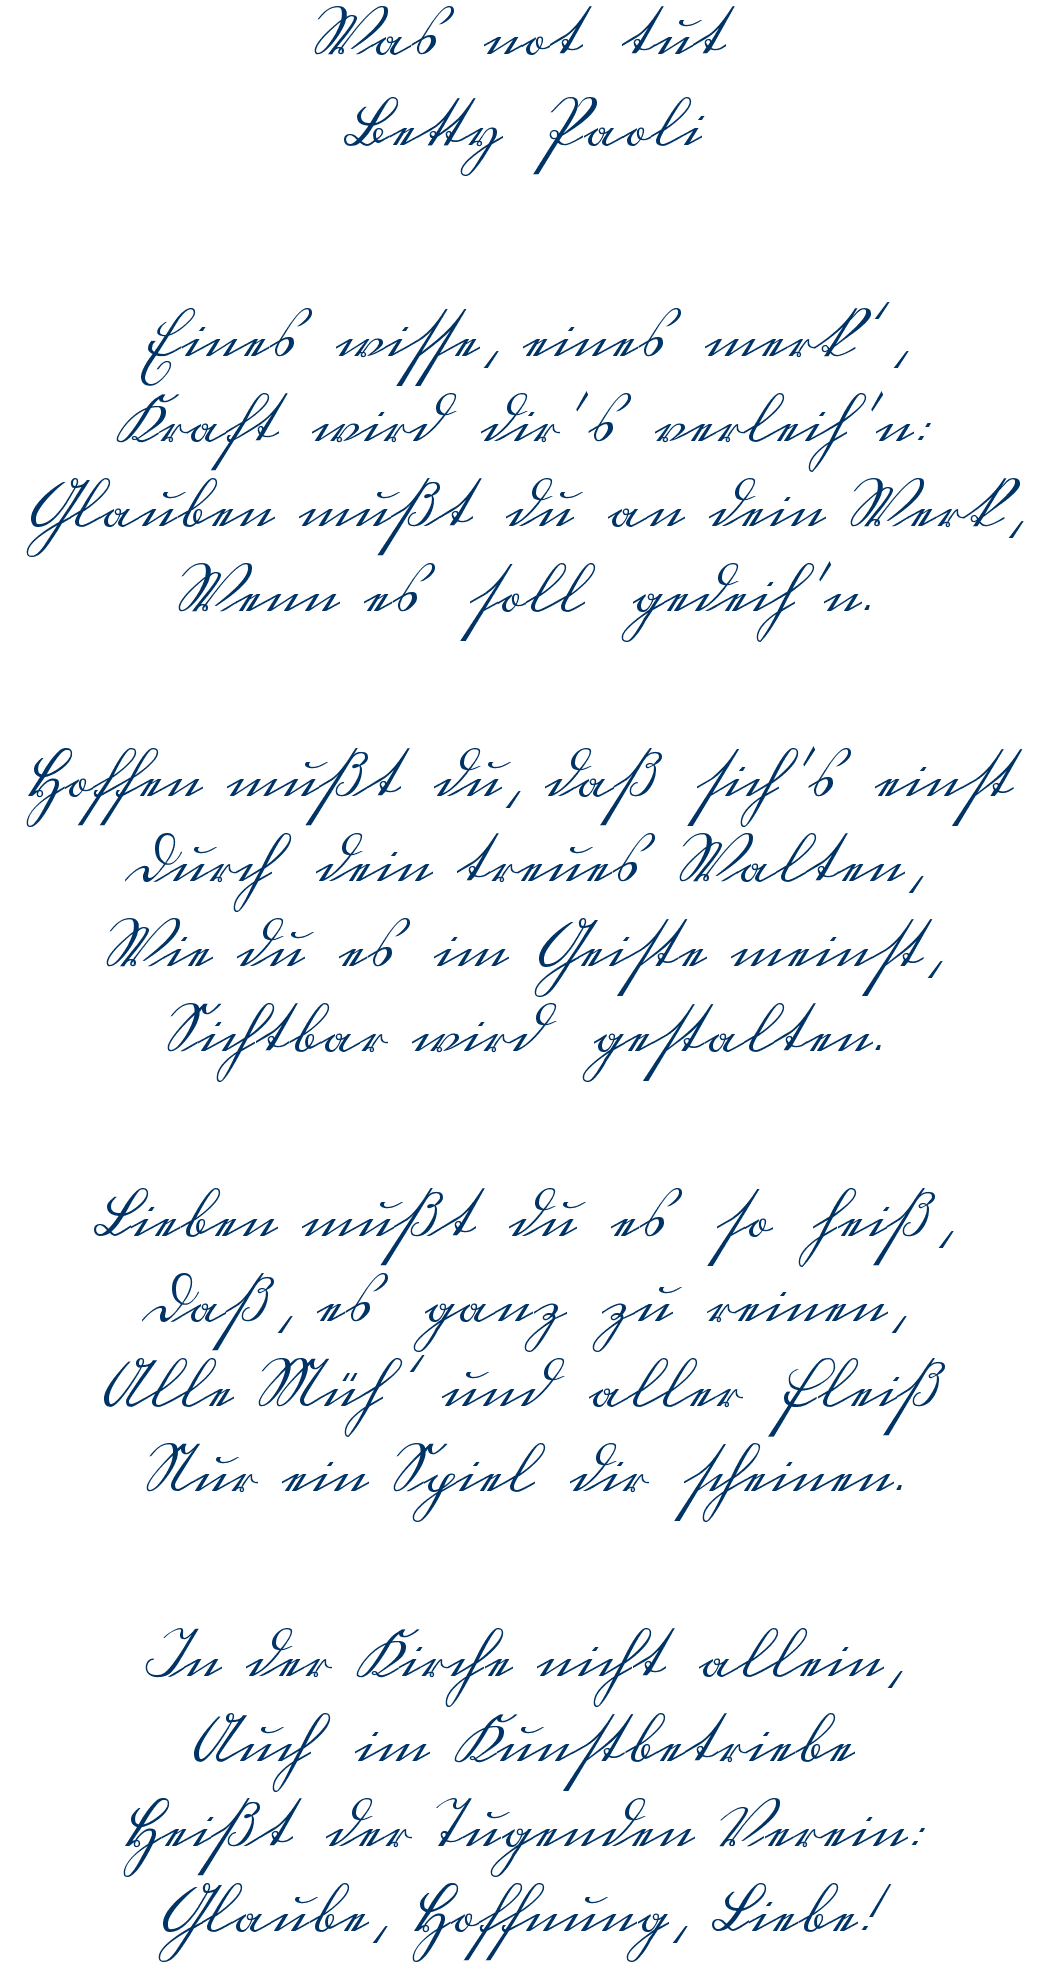 Was not tut
Betty Paoli
Eines wisse, eines merk',
Kraft wird dir's verleih'n:
Glauben mußt du an dein Werk,
Wenn es soll gedeih'n.
Hoffen mußt du, daß sich's einst
Durch dein treues Walten,
Wie du es im Geiste meinst,
Sichtbar wird gestalten.
Lieben mußt du es so heiß,
Daß, es ganz zu reinen,
Alle Müh' und aller Fleiß
Nur ein Spiel dir scheinen.
In der Kirche nicht allein,
Auch im Kunstbetriebe
Heißt der Tugenden Verein:
Glaube, Hoffnung, Liebe!